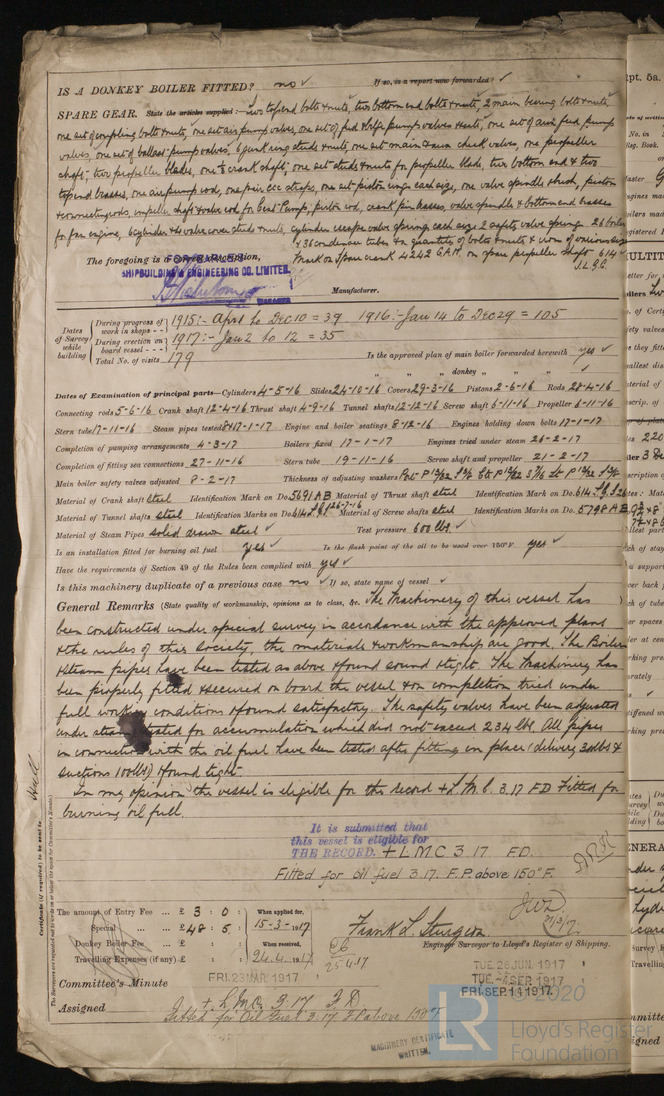 IS A DONKEY BOILER FITTED? no ✓ If so, is a report now forwarded? ✓
SPARE GEAR. State the articles supplied:— two top end bolts & nuts, two bottom end bolts & nuts, 2 main bearing bolts & nuts,
one set of coupling bolts & nuts, one set air pump valves, one set of feed & bilge pump valves & seats, one set of aux feed pump
valves, one set of ballast pump valves, 6 junk ring studs & nuts, one set main & aux check valves, one propeller
shaft, two propeller blades, one crank shaft, one set studs & nuts for propeller blade, two bottom end & two
top end brasses, one air pump rod, one pair ecc straps, one set piston rings each size, one valve spindle & bush, piston
& connecting rods, impeller shaft & valve rod for Cent Pump, piston rod, crank pin brasses, valve spindle & bottom end brasses
for fan engine, 6 cylinder & 6 valve cover studs & nuts, cylinder escape valve springs each size 2 safety valve springs 26 boiler
& 36 condenser tubes & a quantity of bolts & nuts & iron of various sizes
The foregoing is a correct description, Mark on Spare crank 4242 G.A.M. on spare propeller shaft 614
J.L.G.S.
SHIPBUILDING & ENGINEERING CO. LIMITED,
MANAGER Manufacturer.
Dates of Survey while building
During progress of work in shops - - 1915:- April to Dec 10 = 39 1916:- Jan 14 to Dec 29 = 105
During erection on board vessel - - - 1917:- Jan 2 to 12 = 35
Total No. of visits 179 Is the approved plan of main boiler forwarded herewith yes ✓
" " " donkey " " " ✓
Dates of Examination of principal parts—Cylinders 4-5-16 Slides 24-10-16 Covers 29-3-16 Pistons 2-6-16 Rods 28-4-16
Connecting rods 5-6-16 Crank shaft 12-4-16 Thrust shaft 4-9-16 Tunnel shafts 12-12-16 Screw shaft 6-11-16 Propeller 6-11-16
Stern tube 17-11-16 Steam pipes tested 17-1-17 Engine and boiler seatings 8-12-16 Engines holding down bolts 17-1-17
Completion of pumping arrangements 4-3-17 Boilers fixed 17-1-17 Engines tried under steam 26-2-17
Completion of fitting sea connections 27-11-16 Stern tube 19-11-16 Screw shaft and propeller 21-2-17
Main boiler safety valves adjusted 8-2-17 Thickness of adjusting washers
Material of Crank shaft steel Identification Mark on Do. 5691 AB Material of Thrust shaft steel Identification Mark on Do. 614
Material of Tunnel shafts steel Identification Marks on Do. 614 Material of Screw shafts steel Identification Marks on Do. 5798 AB
Material of Steam Pipes solid drawn steel ✓ Test pressure 600 lbs ✓
Is an installation fitted for burning oil fuel yes ✓ Is the flash point of the oil to be used over 150°F. yes ✓
Have the requirements of Section 49 of the Rules been complied with yes ✓
Is this machinery duplicate of a previous case no ✓ If so, state name of vessel ✓
General Remarks (State quality of workmanship, opinions as to class, &c. The Machinery of this vessel has
been constructed under special survey in accordance with the approved plans
& the rules of this society, the materials & workmanship are good. The Boilers
& steam pipes have been tested as above & found sound & tight. The Machinery has
been properly fitted & secured on board the vessel & on completion tried under
full working conditions & found satisfactory. The safety valves have been adjusted
under steam tested for accumulation which did not exceed 234 lbs. All pipes
in connection with the oil fuel have been tested after fitting in place (delivery 300 lbs &
suctions 100 lbs) & found tight.
In my opinion the vessel is eligible for the record + L.M.C. 3.17 FD Fitted for
burning oil fuel.
It is submitted that
this vessel is eligible for
THE RECORD. + LMC 3.17 FD.
Fitted for oil fuel 3.17. F.P. above 150°F.
The amount of Entry Fee ... £ 3 : 0 : When applied for,
Special ... £ 48 : 5 : 15-3-1917
Donkey Boiler Fee ... £ : : When received,
Travelling Expenses (if any) £ : : 24.4.1917
25.4.17
Frank L. Sturgeon
Engineer Surveyor to Lloyd's Register of Shipping.
Committee's Minute FRI. 23 MAR 1917
TUE. 26 JUN. 1917
TUE. -4 SEP. 1917
FRI. SEP. 14 1917
Assigned + L.M.C. 3.17 F.D
Fitted for Oil Fuel 3.17 F.P above 150°F.
MACHINERY CERTIFICATE
WRITTEN.
© 2020
LR
Lloyd's Register
Foundation
Hull
Certificate (if required) to be sent to
The Surveyors are requested not to write on or below the space for Committee's Minute.
Rpt. 5a.